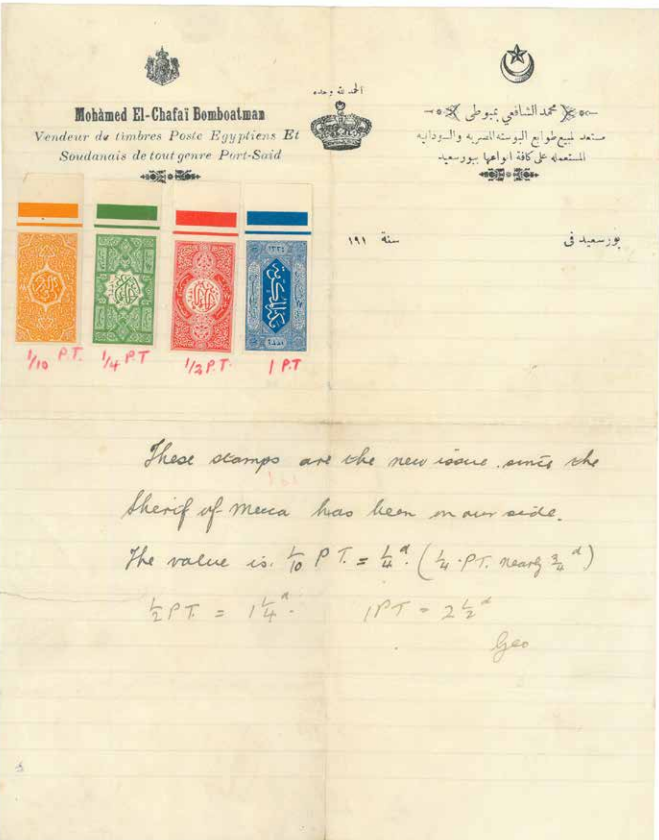 الحمد لله وحده
Mohàmed El-Chafaï Bomboatman
Vendeur de timbres Poste Egyptiens Et
Soudanais de tout genre Port-Saïd
محمد الشافعي بمبوطي
مستعد لمبيع طوابع البوسته المصريه والسودانيه
المستعمله على كافة انواعها ببورسعيد
بورسعيد فى
سنة ١٩١
١٣٣٤
1/10 P.T.
1/4 P.T
1/2 P.T.
1 P.T
These stamps are the new issue. since the
Sherif of Mecca has been on our side.
The value is. 1/10 P T. = 1/4 d. (1/4 . P.T. nearly 3/4 d)
1/2 P.T. = 1 1/4 d.
1 PT = 2 1/2 d
Geo